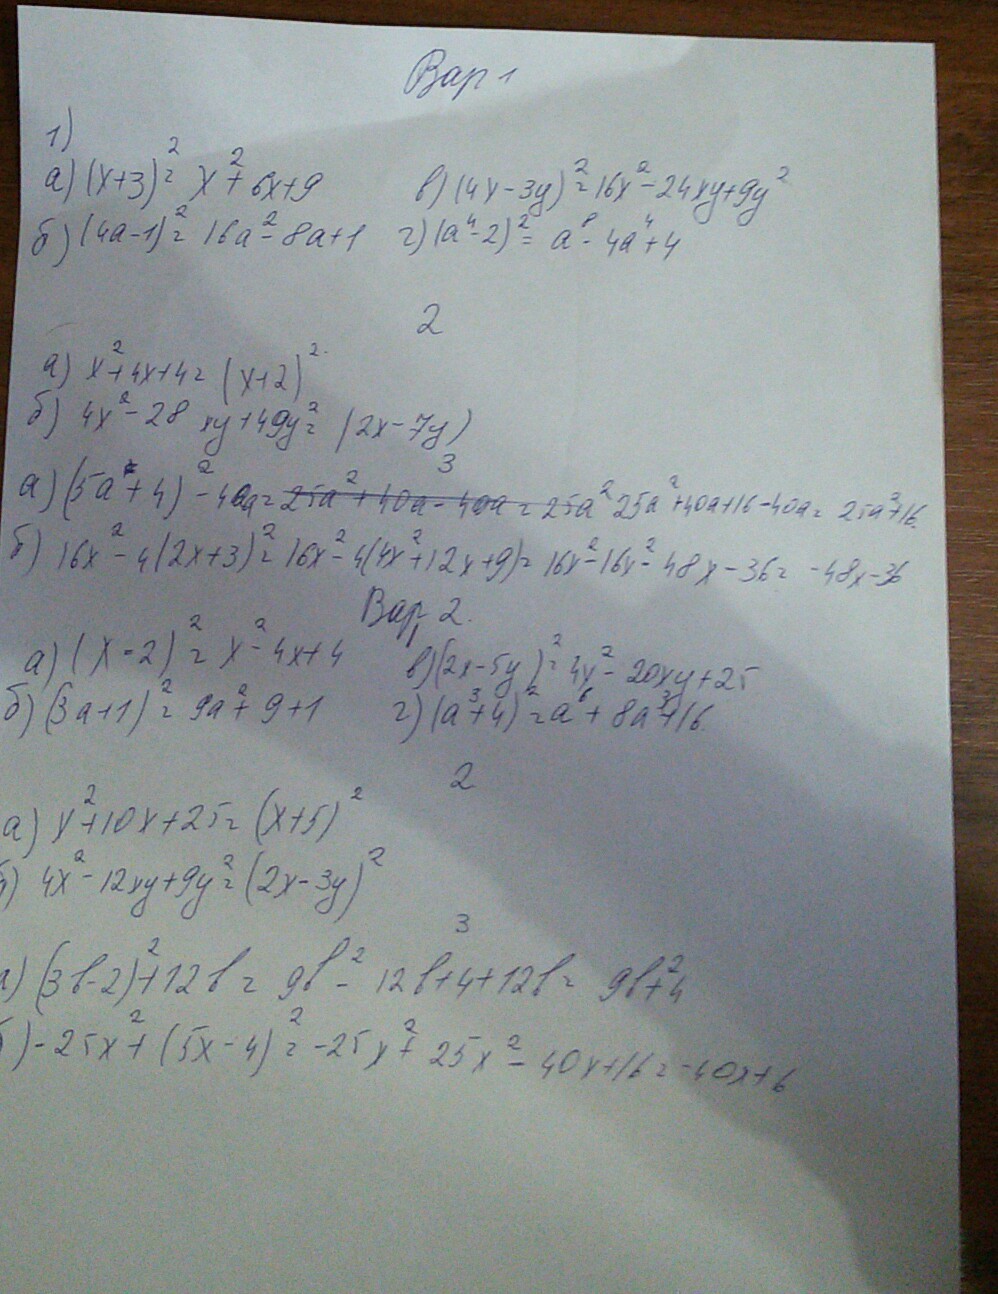 Вар 1
1)
а) (x+3)²= x²+6x+9 в) (4x-3y)²=16x²-24xy+9y²
б) (4a-1)²= 16a²-8a+1 г) (a⁴-2)²= a⁸-4a⁴+4
2
а) x²+4x+4= (x+2)²
б) 4x²-28xy+49y²= (2x-7y)
3
а) (5a+4)²-40a= 25a²+40a-40a= 25a² 25a²+40a+16-40a= 25a²+16.
б) 16x²-4(2x+3)²=16x²-4(4x²+12x+9)=16x²-16x²-48x-36= -48x-36
Вар 2.
а) (x-2)²= x²-4x+4 в) (2x-5y)²=4x²-20xy+25
б) (3a+1)²= 9a²+9+1 г) (a³+4)²=a⁶+8a³+16.
2
а) x²+10x+25= (x+5)²
б) 4x²-12xy+9y²=(2x-3y)²
3
а) (3b-2)²+12b= 9b²-12b+4+12b= 9b²+4
б) -25x²+(5x-4)²= -25x²+25x²-40x+16=-40x+6